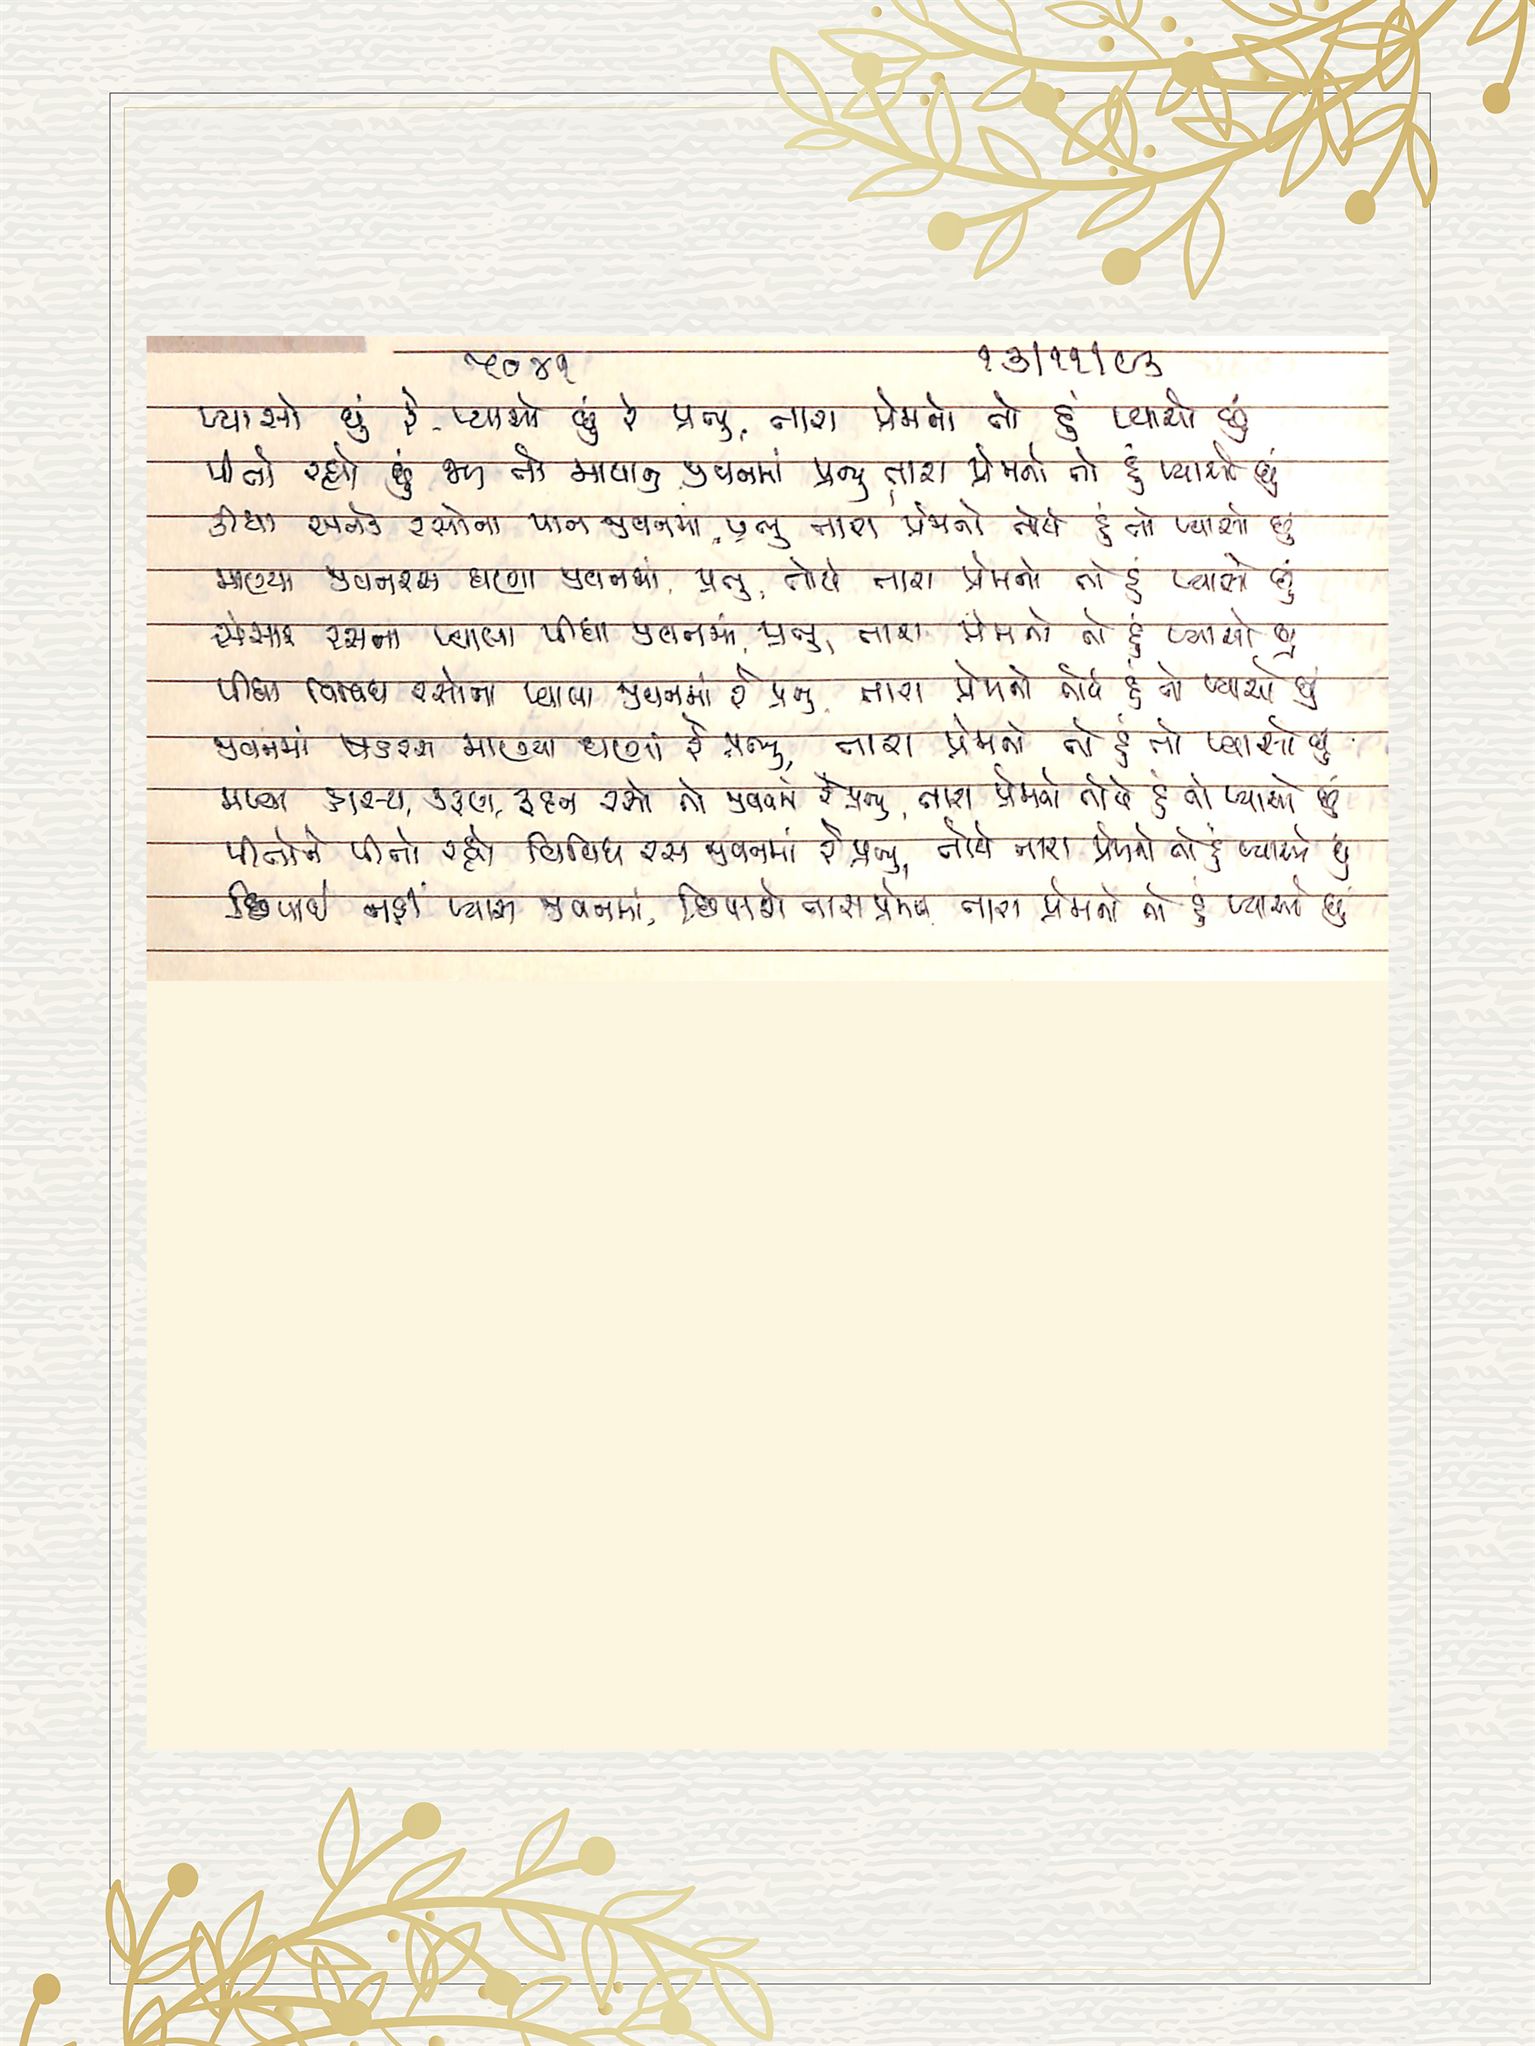 ૫૦૪૧ ૧૩/૧૧/૯૩
પ્યાસો છું રે પ્યાસો છું રે પ્રભુ, તારા પ્રેમનો તો હું પ્યાસો છું
પીતો રહ્યો છું જામ તો માયાનું જીવનમાં પ્રભુ તારા પ્રેમનો તો હું પ્યાસો છું
કીધા અનેક રસોના પાન જીવનમાં, પ્રભુ તારા પ્રેમનો તોયે હું તો પ્યાસો છું
માણ્યા જીવનરસ ઘણા જીવનમાં, પ્રભુ, તોયે તારા પ્રેમનો તો હું પ્યાસો છું
સંસાર રસના પ્યાલા પીધા જીવનમાં, પ્રભુ, તારા પ્રેમનો તો હું પ્યાસો છું
પીધા વિવિધ રસોના પ્યાલા જીવનમાં રે પ્રભુ, તારા પ્રેમનો તોયે હું તો પ્યાસો છું
જીવનમાં ષડરસ માણ્યા ઘણાં રે પ્રભુ, તારા પ્રેમનો તો હું તો પ્યાસો છું
મળ્યા હાસ્ય, કરુણ, રુદન રસો તો જીવનમાં રે પ્રભુ, તારા પ્રેમનો તોયે હું તો પ્યાસો છું
પીતોને પીતો રહ્યો વિવિધ રસ જીવનમાં રે પ્રભુ, તોયે તારા પ્રેમનો તો હું પ્યાસો છું
છિપાઈ નહીં પ્યાસ જીવનમાં, છિપાશે તારા પ્રેમથી તારા પ્રેમનો તો હું પ્યાસો છું